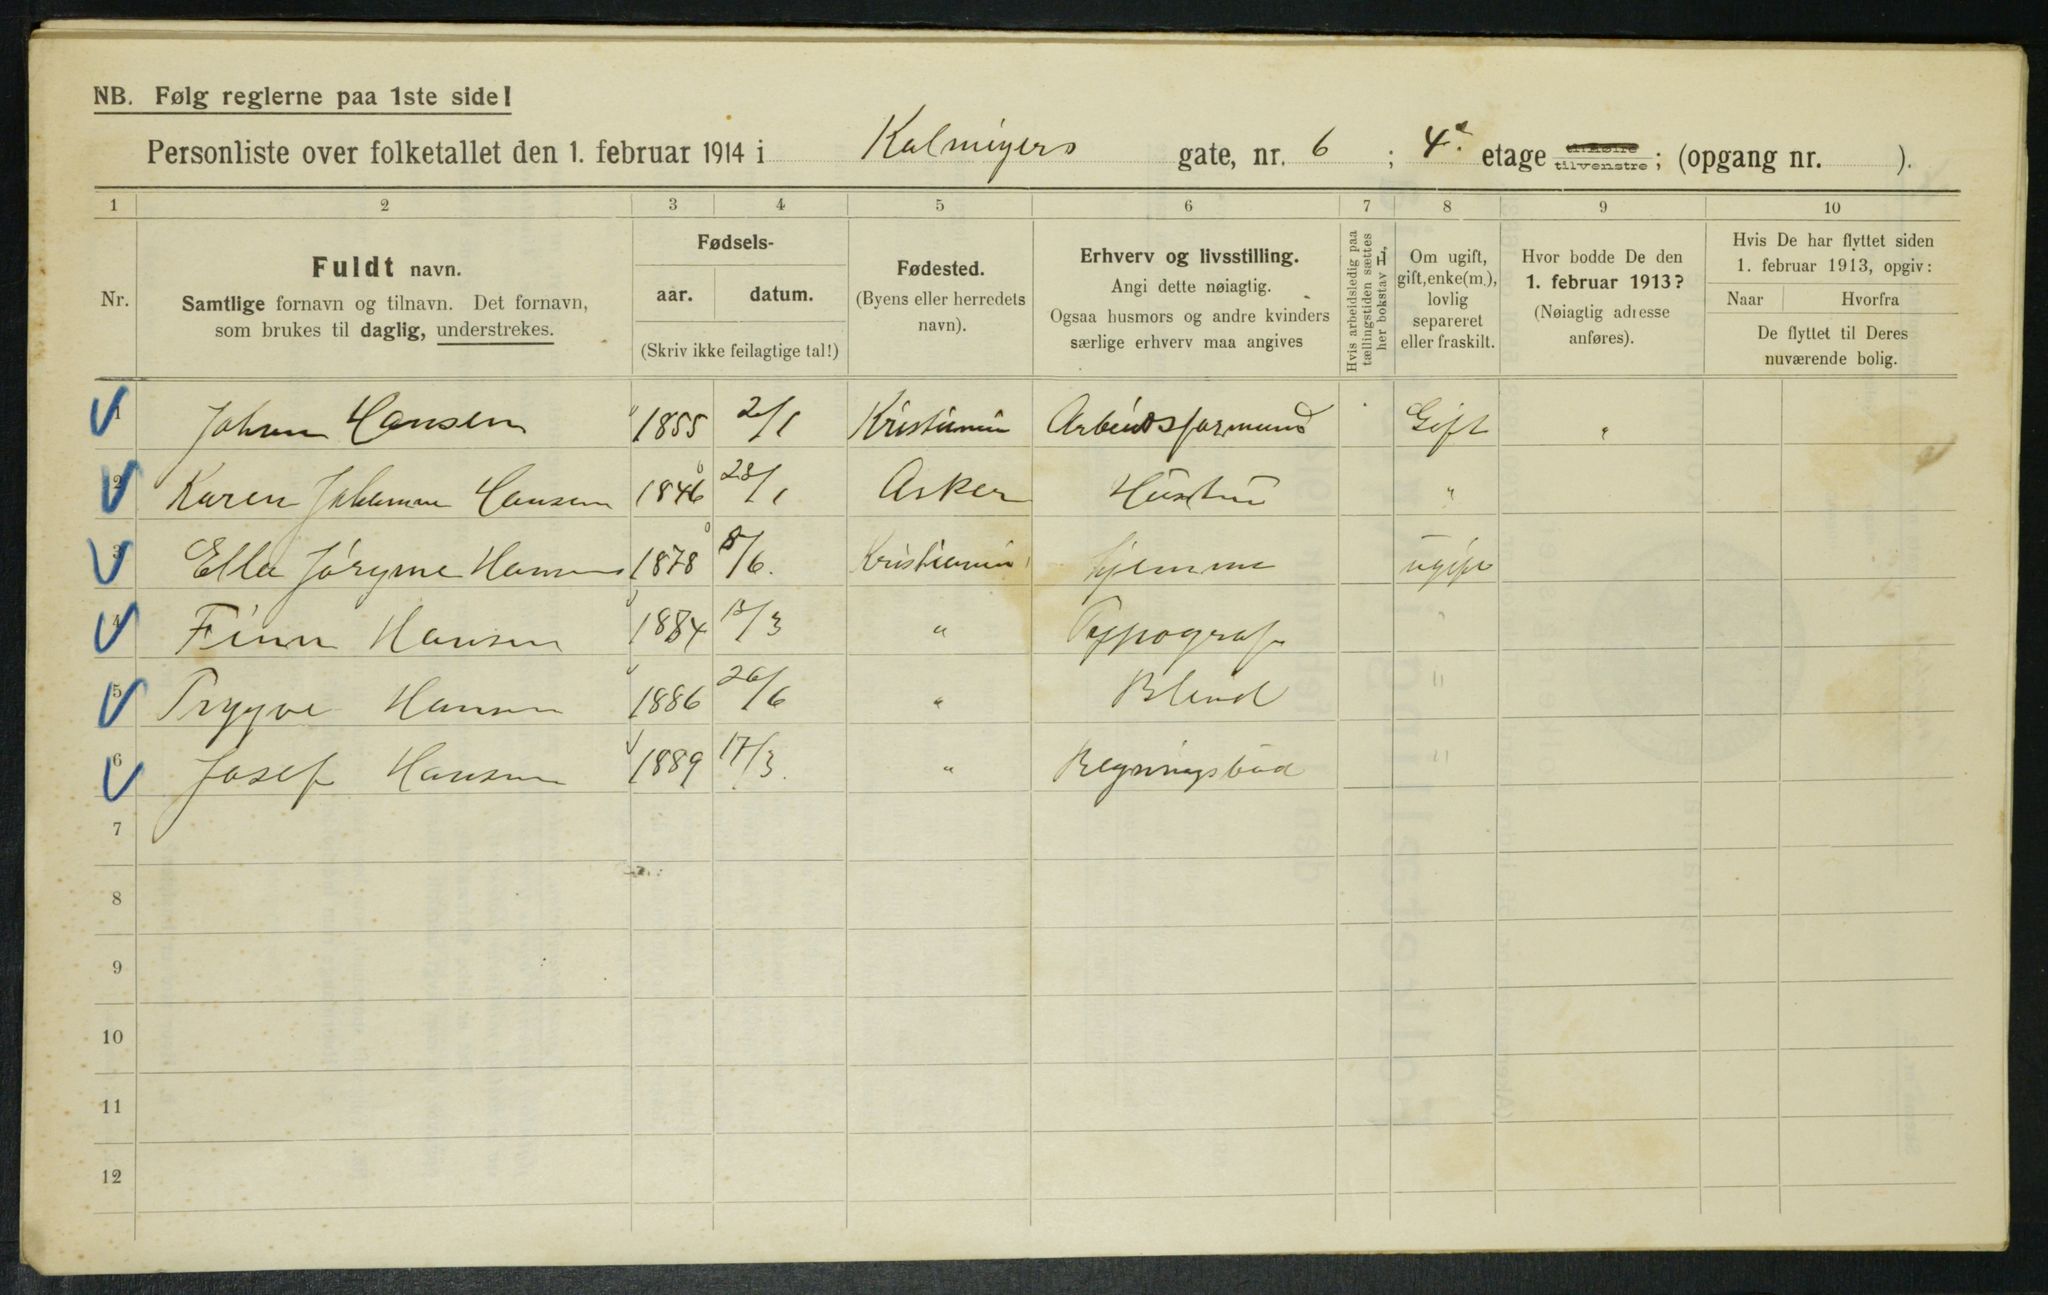 NB. Følg reglerne paa 1ste side!
Personliste over folketallet den 1. februar 1914 i Kalmeyers gate, nr. 6 ; 4e. etage tilhøire tilvenstre; (opgang nr. ).
1 2 3 4 5 6 7 8 9 10
Nr.
Fuldt navn.
Samtlige fornavn og tilnavn. Det fornavn,
som brukes til daglig, understrekes.
Fødsels-
aar. datum.
(Skriv ikke feilagtige tal!)
Fødested.
(Byens eller herredets
navn).
Erhverv og livsstilling.
Angi dette nøiagtig.
Ogsaa husmors og andre kvinders
særlige erhverv maa angives
Hvis arbeidsledig paa
tællingstiden sættes
her bokstav L,
Om ugift,
gift, enke(m.),
lovlig
separeret
eller fraskilt.
Hvor bodde De den
1. februar 1913?
(Nøiagtig adresse
anføres).
Hvis De har flyttet siden
1. februar 1913, opgiv:
Naar Hvorfra
De flyttet til Deres
nuværende bolig.
1 Johan Hansen 1855 2/1 Kristiania Arbeidsformand Gift "
2 Karen Johanne Hansen 1846 28/1 Asker Hustru "
3 Ella Jörgine Hansen 1878 8/6. Kristiania hjemme ugift
4 Finn Hansen 1884 13/3 " Typograf "
5 Trygve Hansen 1886 26/6 " Blind "
6 Josef Hansen 1889 17/3. " Regningsbud "
7
8
9
10
11
12